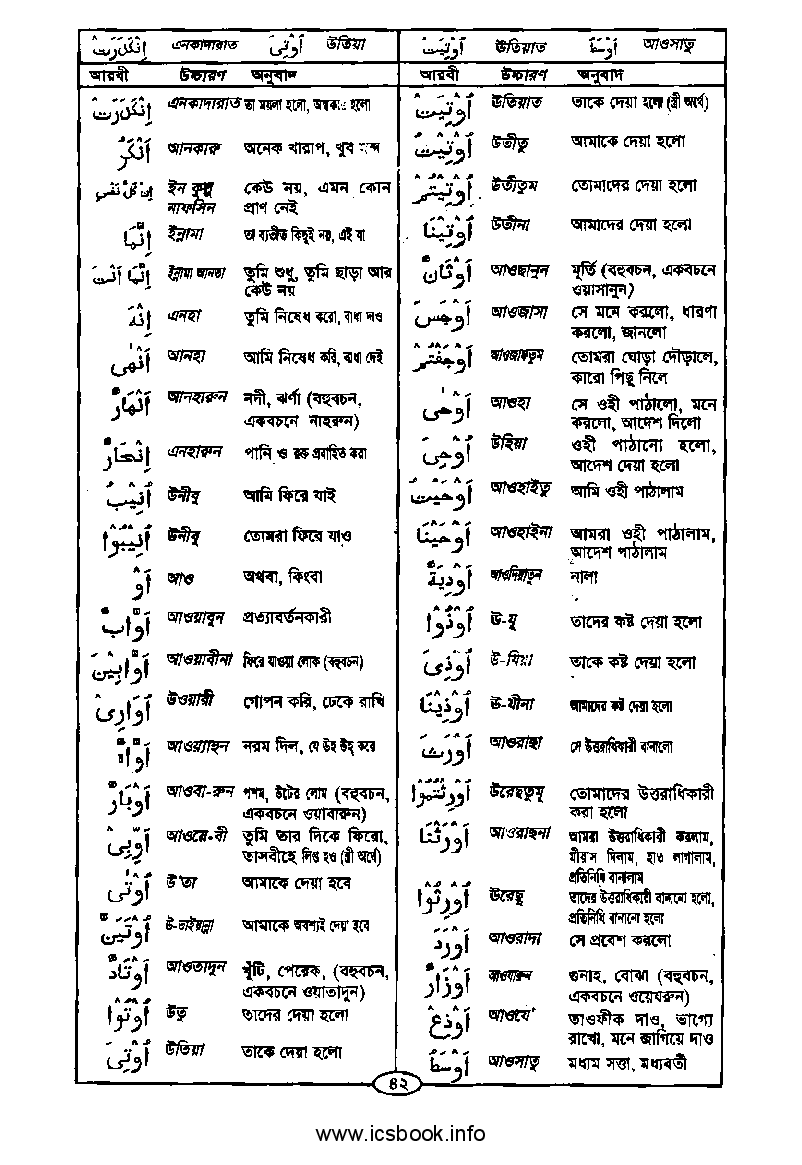 اِنْكَدَرَتْ এনকাদারাত اُوْتِىَ উতিয়া
আরবী উচ্চারণ অনুবাদ
اِنْكَدَرَتْ এনকাদারাত তা ময়লা হলো, অন্ধকার হলো
اَنْكَرُ আনকারু অনেক খারাপ, খুব মন্দ
اِنْ كُلُّ نَفْسٍ ইন কুল্লু কেউ নয়, এমন কোন
নাফসিন প্রাণ নেই
اِنَّمَا ইন্নামা তা ব্যতীত কিছুই নয়, এই যা
اِنَّمَا اَنْتَ ইন্নামা আনতা তুমি শুধু, তুমি ছাড়া আর
কেউ নয়
اِنْهَ এনহা তুমি নিষেধ করো, বাধা দাও
اَنْهٰى আনহা আমি নিষেধ করি, বাধা দেই
اَنْهَارٌ আনহারুন নদী, ঝর্ণা (বহুবচন,
একবচনে নাহরুন)
এনহারুন পানি ও রক্ত প্রবাহিত করা
اُنِيْبُ উনীবু আমি ফিরে যাই
اَنِيْبُوْا উনীবু তোমরা ফিরে যাও
اَوْ আও অথবা, কিংবা
اَوَّابٌ আওয়াবুন প্রত্যাবর্তনকারী
اَوَّابِيْنَ আওয়াবীনা ফিরে যাওয়া লোক (বহুবচন)
اُوَارِىَ উওয়ারী গোপন করি, ঢেকে রাখি
اَوَّاهٌ আওয়াহুন নরম দিল, যে উহ উহ্ করে
اَوْبَارٌ আওবা-রুন পশম, উটের লোম (বহুবচন,
একবচনে ওয়াবারুন)
اَوِّبِىْ আওয়ে-বী তুমি তার দিকে ফিরো,
তাসবীহে লিপ্ত হও (স্ত্রী অর্থে)
اُوْتٰى উ'তা আমাকে দেয়া হবে
اُوْتَيَنَّ উ-তাইয়ান্না আমাকে অবশ্যই দেয়া হবে
اَوْتَادٌ আওতাদুন খুঁটি, পেরেক, (বহুবচন,
একবচনে ওয়াতাদুন)
اُوْتُوْا উতু তাদের দেয়া হলো
اُوْتِىَ উতিয়া তাকে দেয়া হলো
اُوْتِيَتْ উতিয়াত اَوْسَطُ আওসাতু
আরবী উচ্চারণ অনুবাদ
اُوْتِيَتْ উতিয়াত তাকে দেয়া হলো (স্ত্রী অর্থে)
اُوْتِيْتُ উতীতু আমাকে দেয়া হলো
اُوْتِيْتُمْ উতীতুম তোমাদের দেয়া হলো
اُوْتِيْنَا উতীনা আমাদের দেয়া হলো
اَوْثَانٌ আওছানুন মূর্তি (বহুবচন, একবচনে
ওয়াসানুন)
اَوْجَسَ আওজাসা সে মনে করলো, ধারণা
করলো, জানলো
اَوْجَفْتُمْ আওজাফতুম তোমরা ঘোড়া দৌড়ালে,
কারো পিছু নিলে
اَوْحٰى আওহা সে ওহী পাঠালো, মনে
করলো, আদেশ দিলো
اُوْحِىَ উহিয়া ওহী পাঠানো হলো,
আদেশ দেয়া হলো
اَوْحَيْتُ আওহাইতু আমি ওহী পাঠালাম
اَوْحَيْنَا আওহাইনা আমরা ওহী পাঠালাম,
আদেশ পাঠালাম
اَوْدِيَةٌ আওদিয়াতুন নালা
اُوْذُوْا উ-যু তাদের কষ্ট দেয়া হলো
اُوْذِىَ উ-যিয়া তাকে কষ্ট দেয়া হলো
اُوْذِيْنَا উ-যীনা আমাদের কষ্ট দেয়া হলো
اَوْرَثَ আওরাছা সে উত্তরাধিকারী বানালো
اُوْرِثْتُمُوْا উরেছতুমূ তোমাদের উত্তরাধিকারী
করা হলো
اَوْرَثْنَا আওরাছনা আমরা উত্তরাধিকারী করলাম,
মীরাস দিলাম, হাত লাগালাম,
প্রতিনিধি বানালাম
اُوْرِثُوْا উরেছু তাদের উত্তরাধিকারী বানানো হলো,
প্রতিনিধি বানানো হলো
اَوْرَدَ আওরাদা সে প্রবেশ করলো
اَوْزَارٌ আওযারুন গুনাহ, বোঝা (বহুবচন,
একবচনে ওয়েযরুন)
اَوْزِعْ আওযে' তাওফীক দাও, ভাগ্যে
রাখো, মনে জাগিয়ে দাও
اَوْسَطُ আওসাতু মধ্যম সত্তা, মধ্যবর্তী
৪২
www.icsbook.info